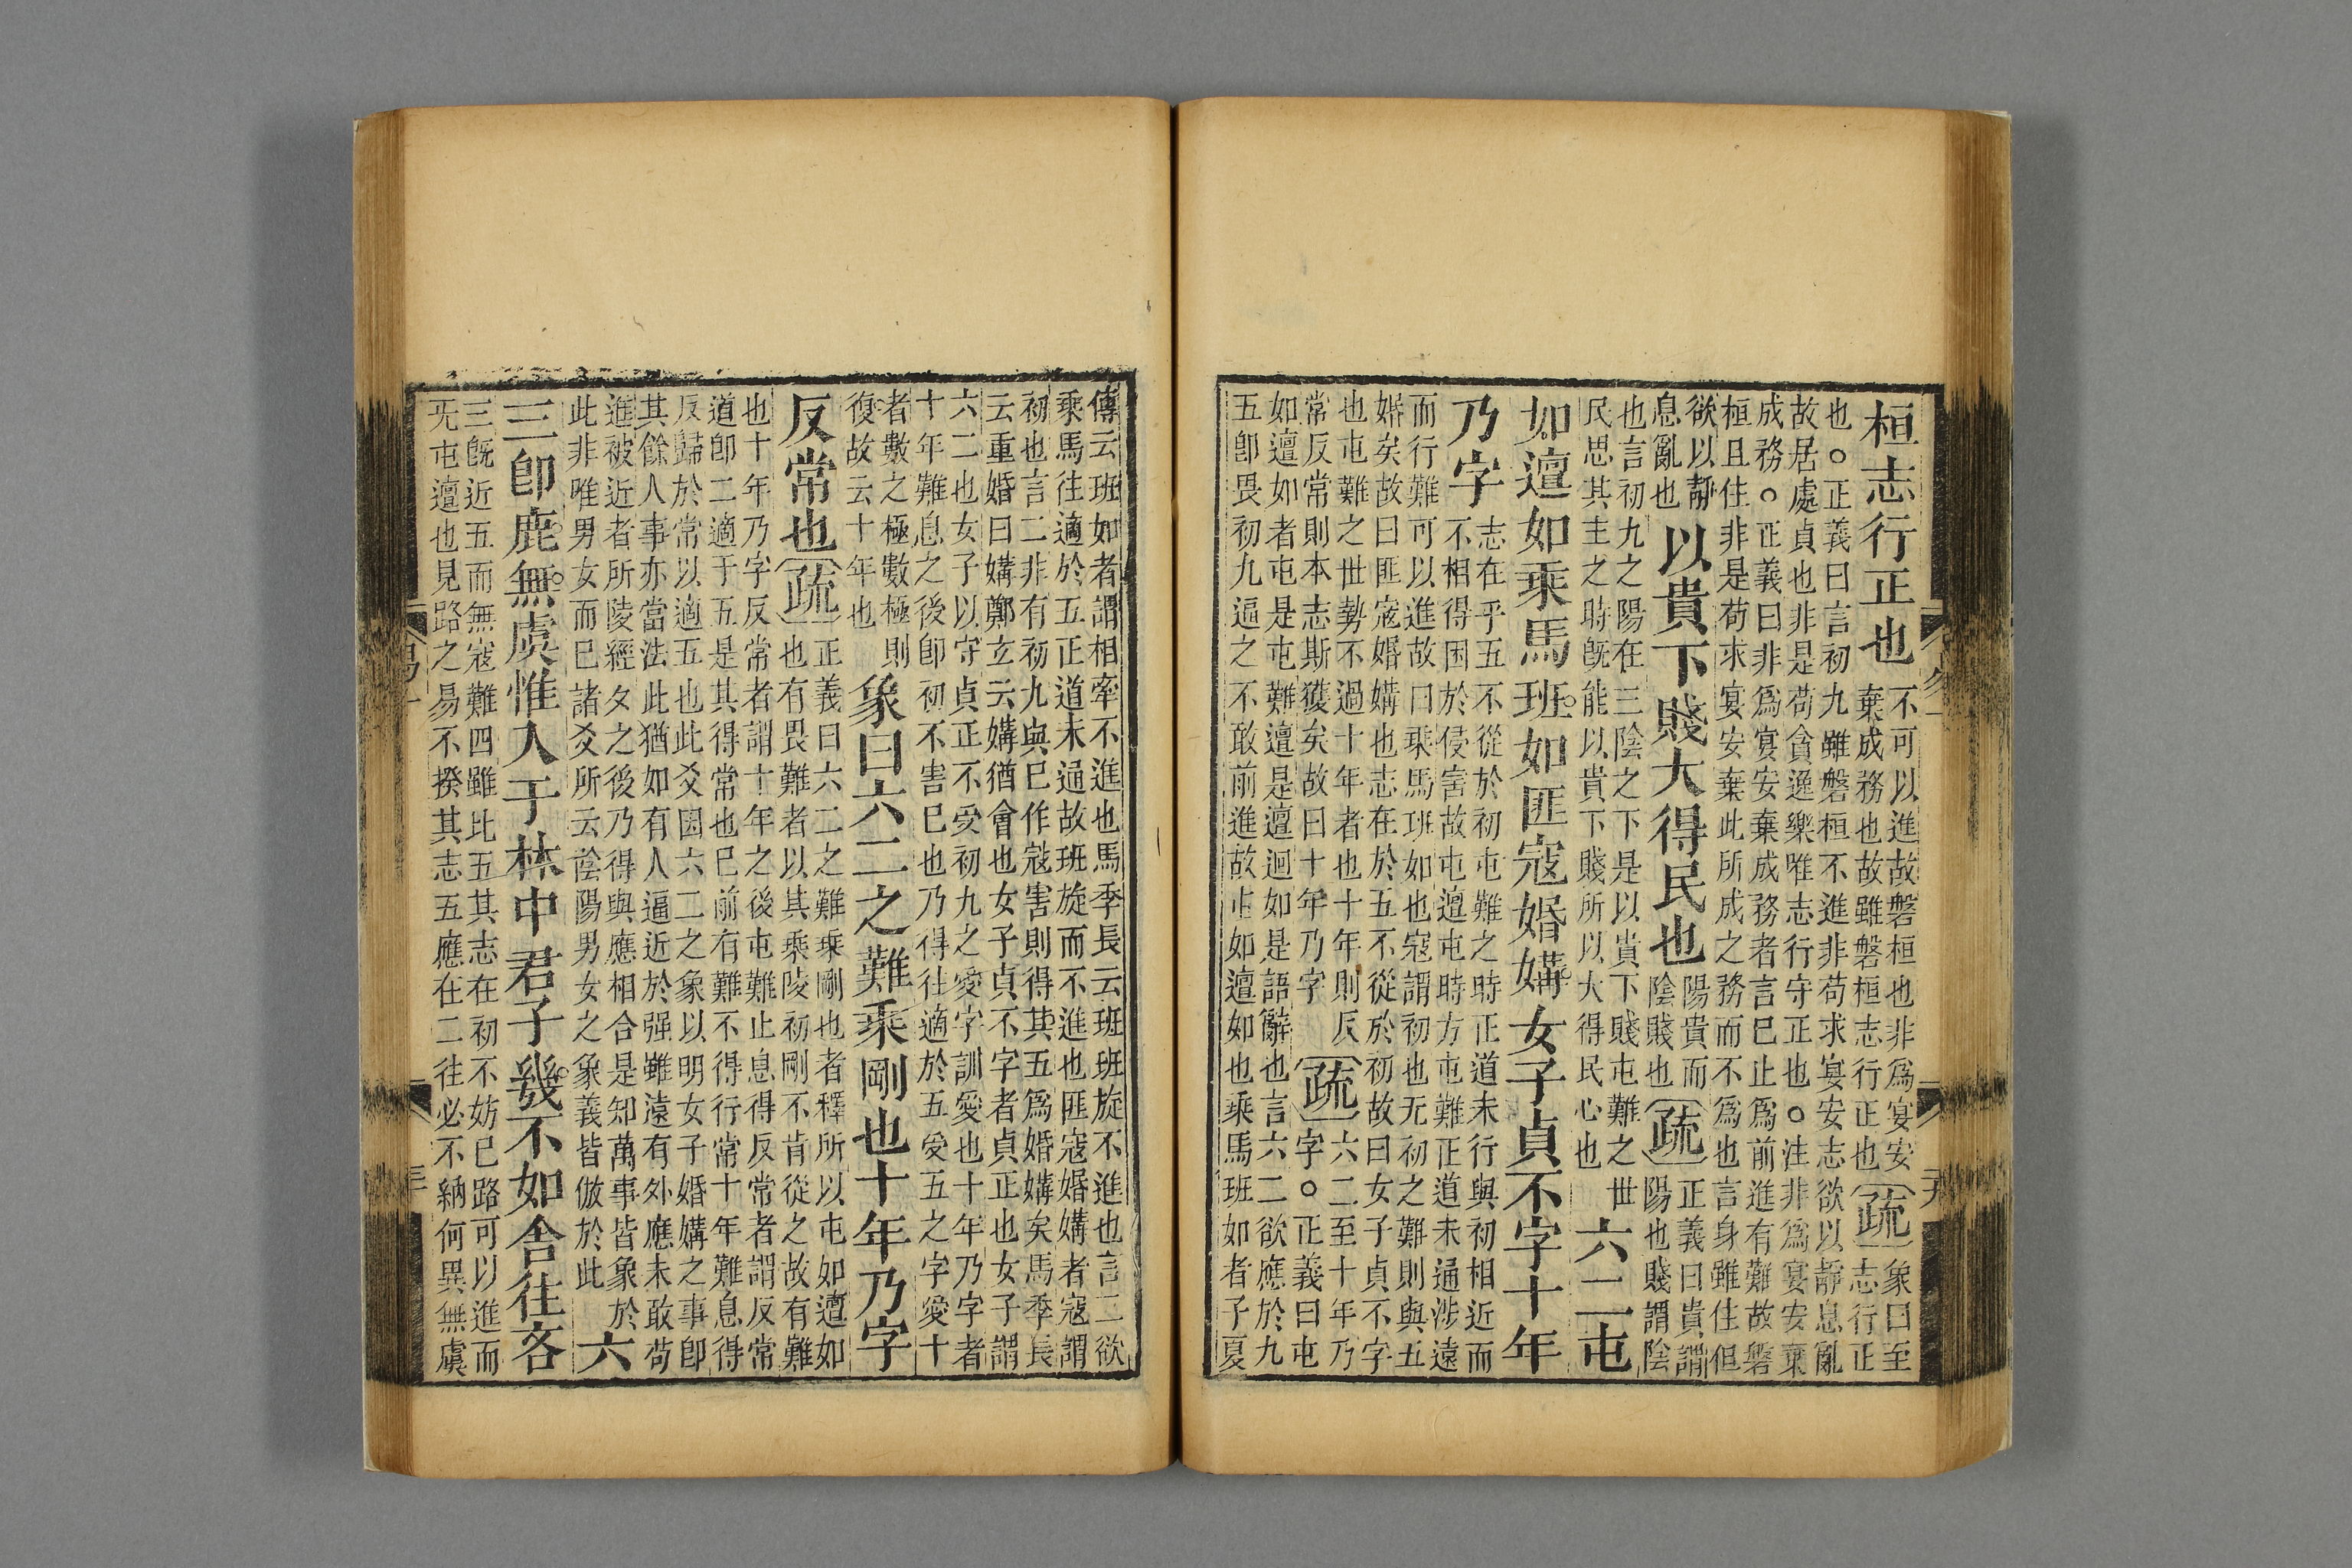 桓志行正也
不可以進故磐桓也非爲宴安
棄成務也故雖磐桓志行正也
疏
象曰至
志行正
也○正義曰言初九雖磐桓不進非苟求宴安志欲以靜息亂
故居處貞也非是苟貪逸樂唯志行守正也○注非爲宴安棄
成務○正義曰非爲宴安棄成務者言巳止爲前進有難故磐
桓且住非是苟求宴安棄此所成之務而不爲也言身雖住但
欲以靜
息亂也
以貴下賤大得民也
陽貴而
陰賤也
疏
正義曰貴謂
陽也賤謂陰
也言初九之陽在三陰之下是以貴下賤屯難之世
民思其主之時旣能以貴下賤所以大得民心也
六二屯
如邅如乘馬班如匪寇婚媾女子貞不字十年
乃字
志在乎五不從於初屯難之時正道未行與初相近而
不相得困於侵害故屯邅屯時方屯難正道未通涉遠
而行難可以進故曰乘馬班如也寇謂初也无初之難則與五
婚矣故曰匪寇婚媾也志在於五不從於初故曰女子貞不字
也屯難之世勢不過十年者也十年則反
常反常則本志斯獲矣故曰十年乃字
疏
六二至十年乃
字○正義曰屯
如邅如者屯是屯難邅是邅迴如是語辭也言六二欲應於九
五卽畏初九逼之不敢前進故屯如邅如也乘馬班如者子夏
傳云班如者謂相牽不進也馬季長云班班旋不進也言二欲
乘馬往適於五正道未通故班旋而不進也匪寇婚媾者寇謂
初也言二非有初九與巳作寇害則得其五爲婚媾矣馬季長
云重婚曰媾鄭玄云媾猶會也女子貞不字者貞正也女子謂
六二也女子以守貞正不受初九之愛字訓愛也十年乃字者
十年難息之後卽初不害巳也乃得往適於五受五之字愛十
者數之極數極則
復故云十年也
象曰六二之難乘剛也十年乃字
反常也
疏
正義曰六二之難乘剛也者釋所以屯如邅如
也有畏難者以其乘陵初剛不肯從之故有難
也十年乃字反常者謂十年之後屯難止息得反常者謂反常
道卽二適于五是其得常也巳前有難不得行常十年難息得
反歸於常以適五也此爻因六二之象以明女子婚媾之事卽
其餘人事亦當法此猶如有人逼近於强雖遠有外應未敢苟
進被近者所陵經久之後乃得與應相合是知萬事皆象於
此非唯男女而巳諸爻所云陰陽男女之象義皆倣於此
六
三卽鹿無虞惟入于林中君子幾不如舍往吝
三旣近五而無寇難四雖比五其志在初不妨巳路可以進而
无屯邅也見路之易不揆其志五應在二往必不納何異無虞